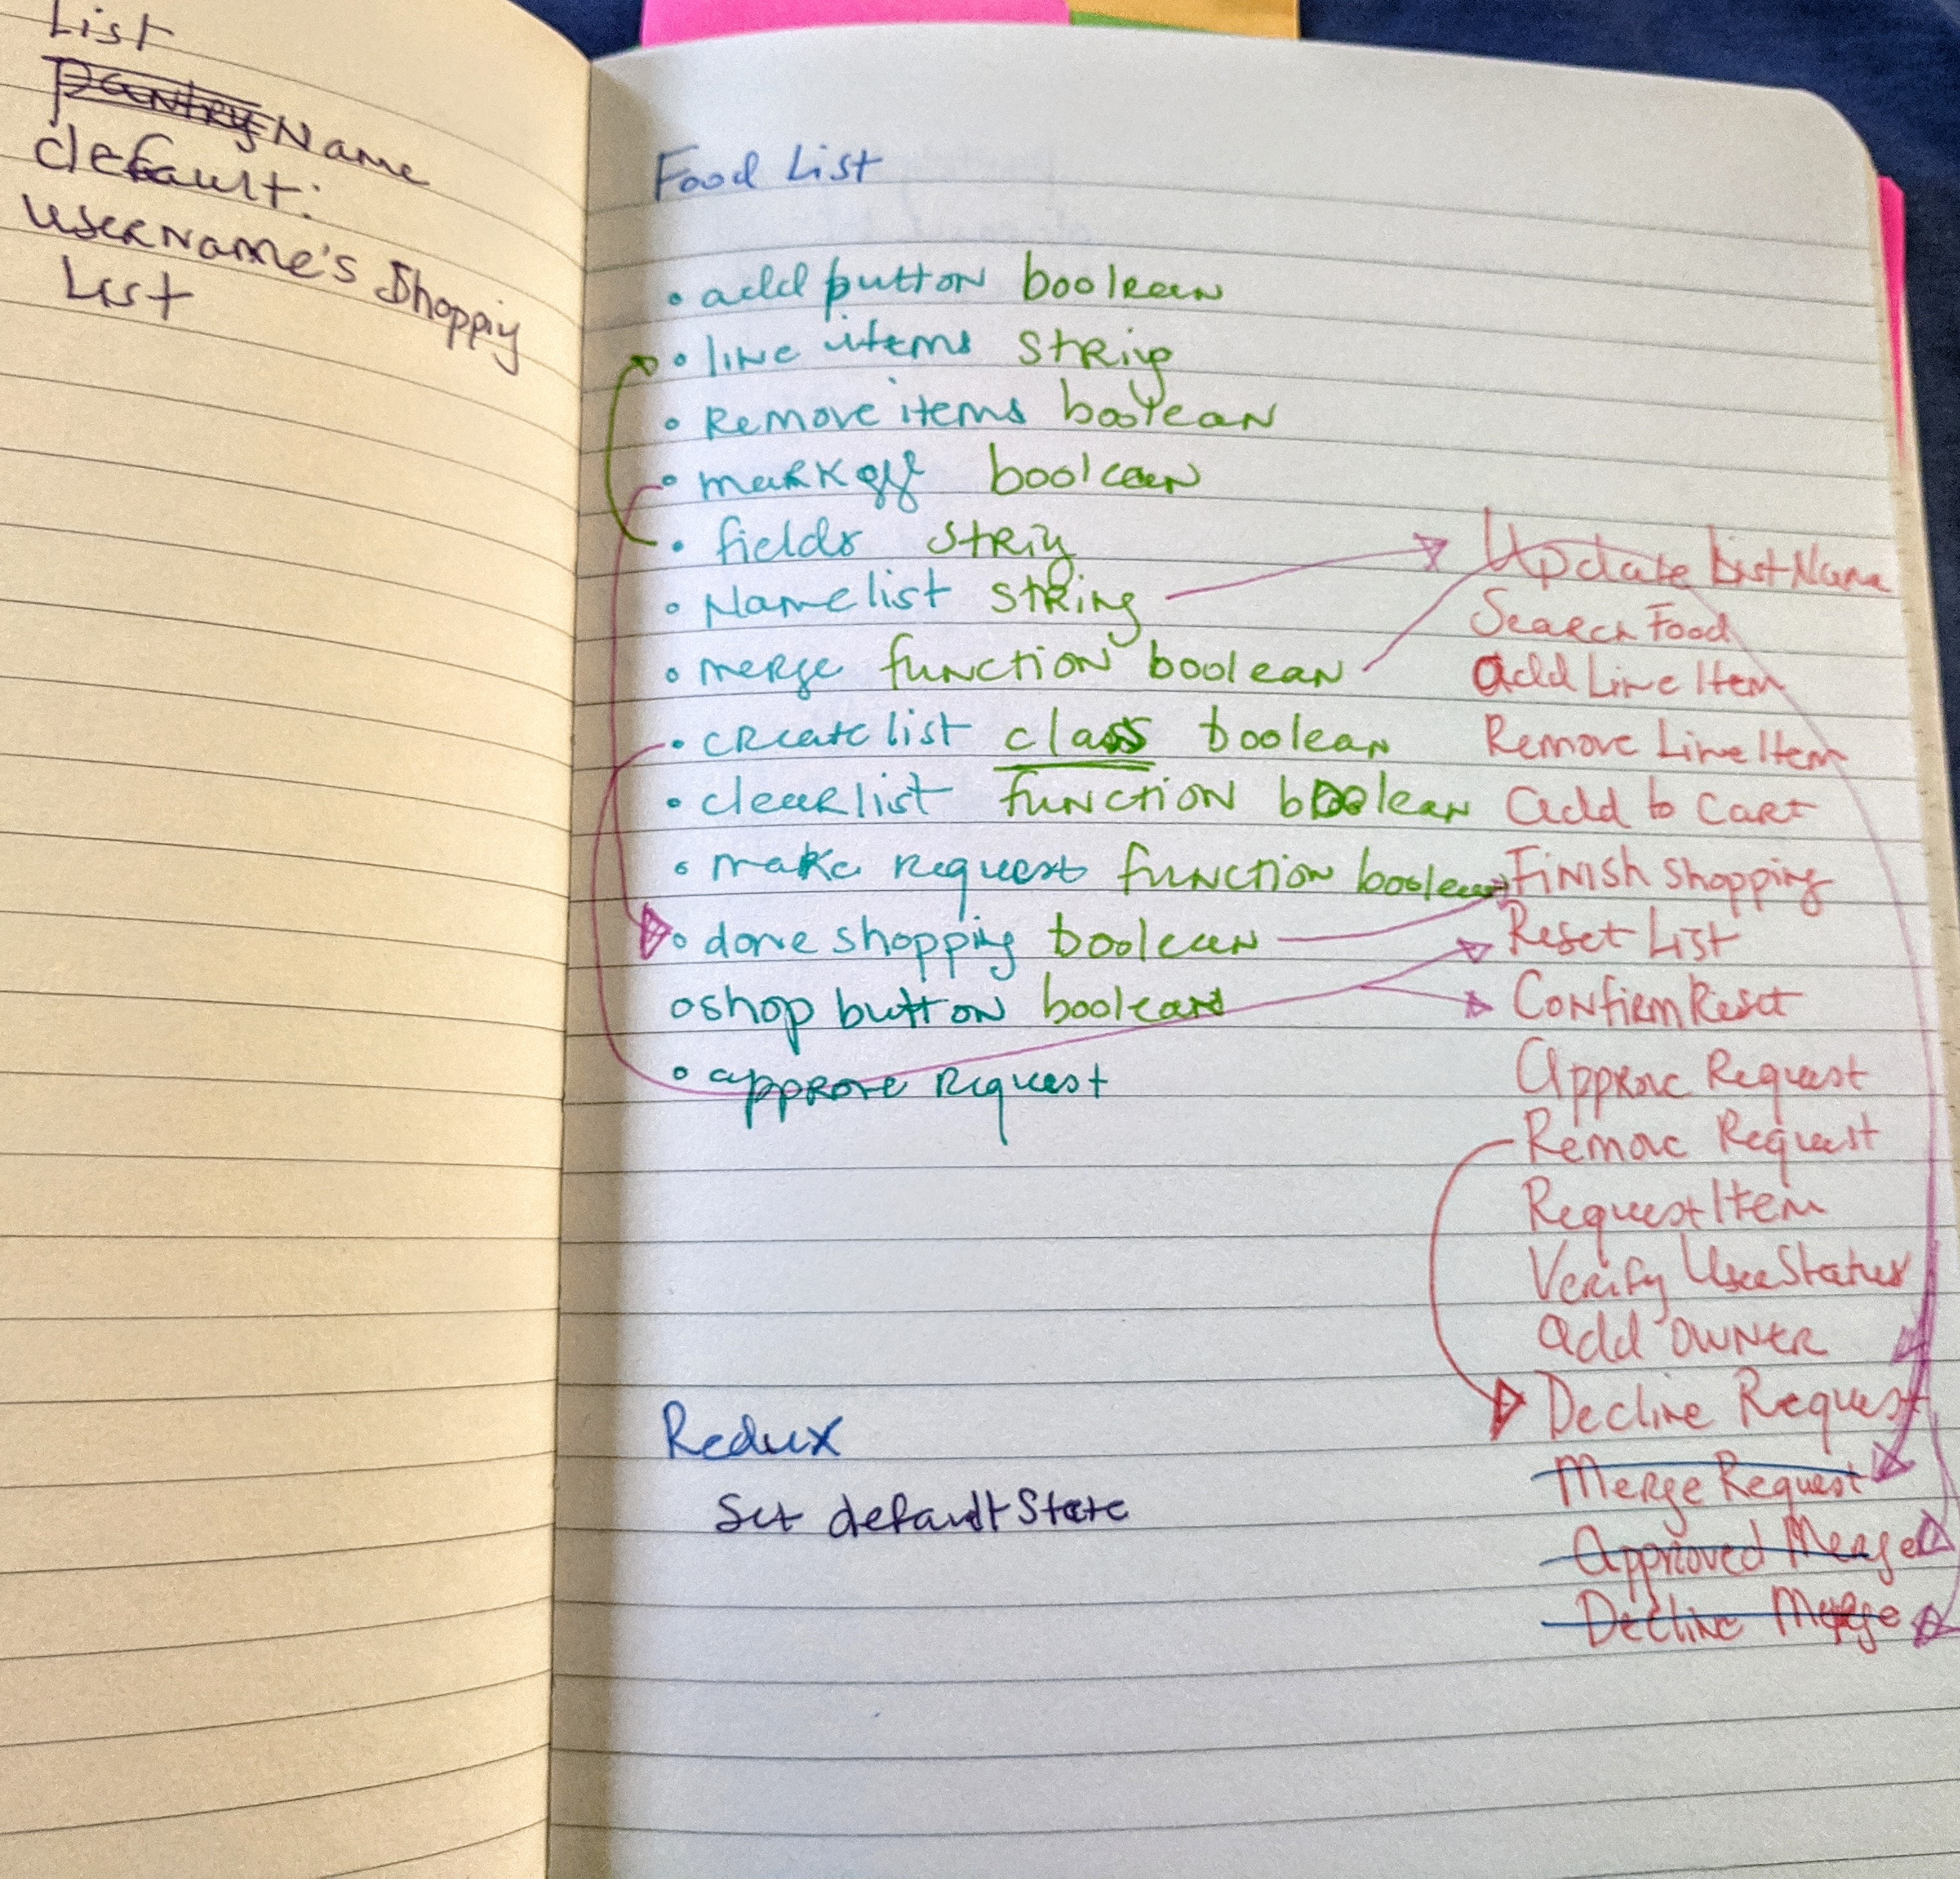 List
Pantry Name
default:
username's Shoppiy
List
Food List
• add button boolean
• line items string
• Remove items boolean
• mark off boolean
• fields striy
• Name list string
• merge function boolean
• create list class boolean
• clear list function boolean
• make request function boolean
• done shopping boolean
o shop button boolean
• approve request
Update List Name
Search Food
add Line Item
Remove Line Item
add to cart
Finish shopping
Reset List
Confirm Reset
Approve Request
Remove Request
Request Item
Verify User Status
add owner
Decline Request
Merge Request
Approved Merge
Decline Merge
Redux
Set default State